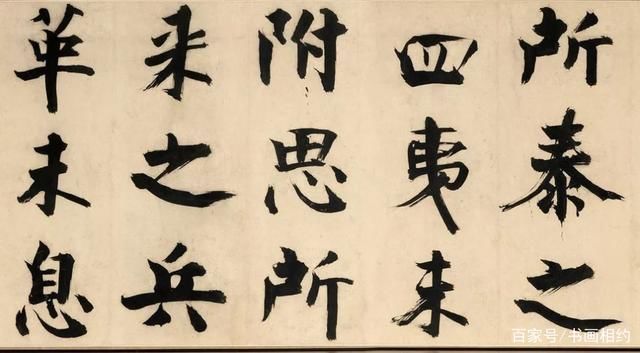 所泰之
四夷未
附思所
来之兵
革未息
百家号/书画相约